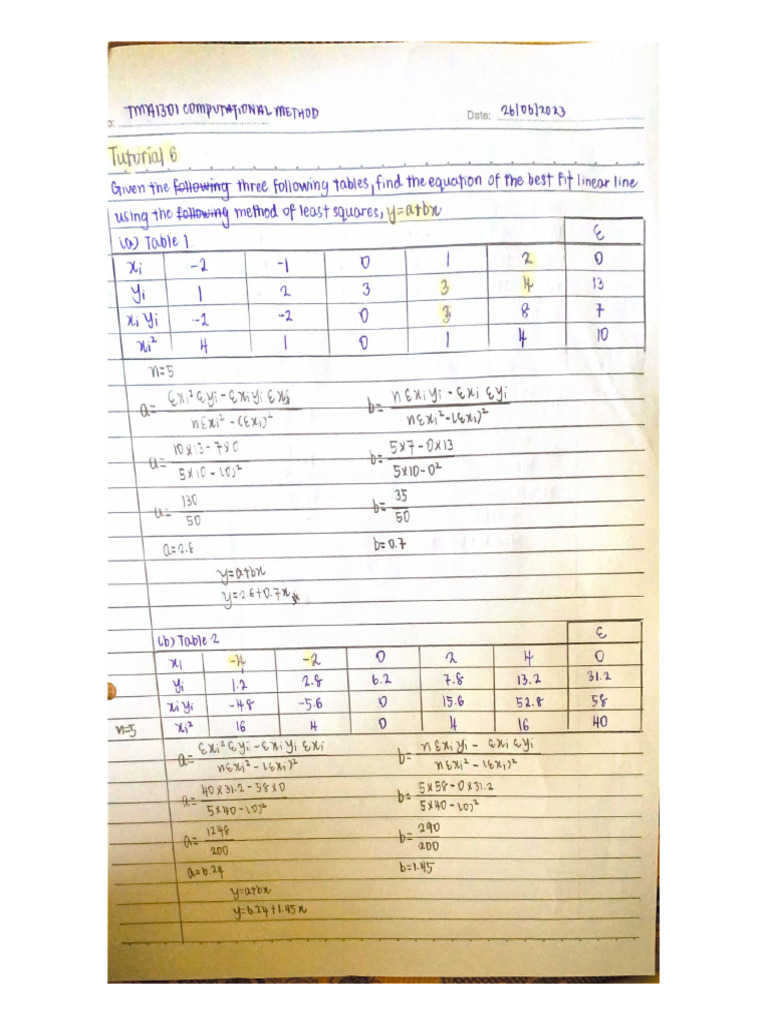 TMA1301 COMPUTATIONAL METHOD Date: 26/06/2023
Tutorial 6
Given the following three following tables, find the equation of the best fit linear line
using the following method of least squares, y=a+bx
(a) Table 1 Σ
xi -2 -1 0 1 2 0
yi 1 2 3 3 4 13
xiyi -2 -2 0 3 8 7
xi² 4 1 0 1 4 10
n=5
a= Σxi²Σyi-ΣxiyiΣxi / nΣxi²-(Σxi)² b= nΣxiyi-ΣxiΣyi / nΣxi²-(Σxi)²
a= 10×13-7×0 / 5×10-(0)² b= 5×7-0×13 / 5×10-0²
a= 130 / 50 b= 35 / 50
a=2.6 b=0.7
y=a+bx
y=2.6+0.7x
(b) Table 2 Σ
xi -4 -2 0 2 4 0
yi 1.2 2.8 6.2 7.8 13.2 31.2
xiyi -4.8 -5.6 0 15.6 52.8 58
n=5 xi² 16 4 0 4 16 40
a= Σxi²Σyi-ΣxiyiΣxi / nΣxi²-(Σxi)² b= nΣxiyi-ΣxiΣyi / nΣxi²-(Σxi)²
a= 40×31.2-58×0 / 5×40-(0)² b= 5×58-0×31.2 / 5×40-(0)²
a= 1248 / 200 b= 290 / 200
a=6.24 b=1.45
y=a+bx
y=6.24+1.45x